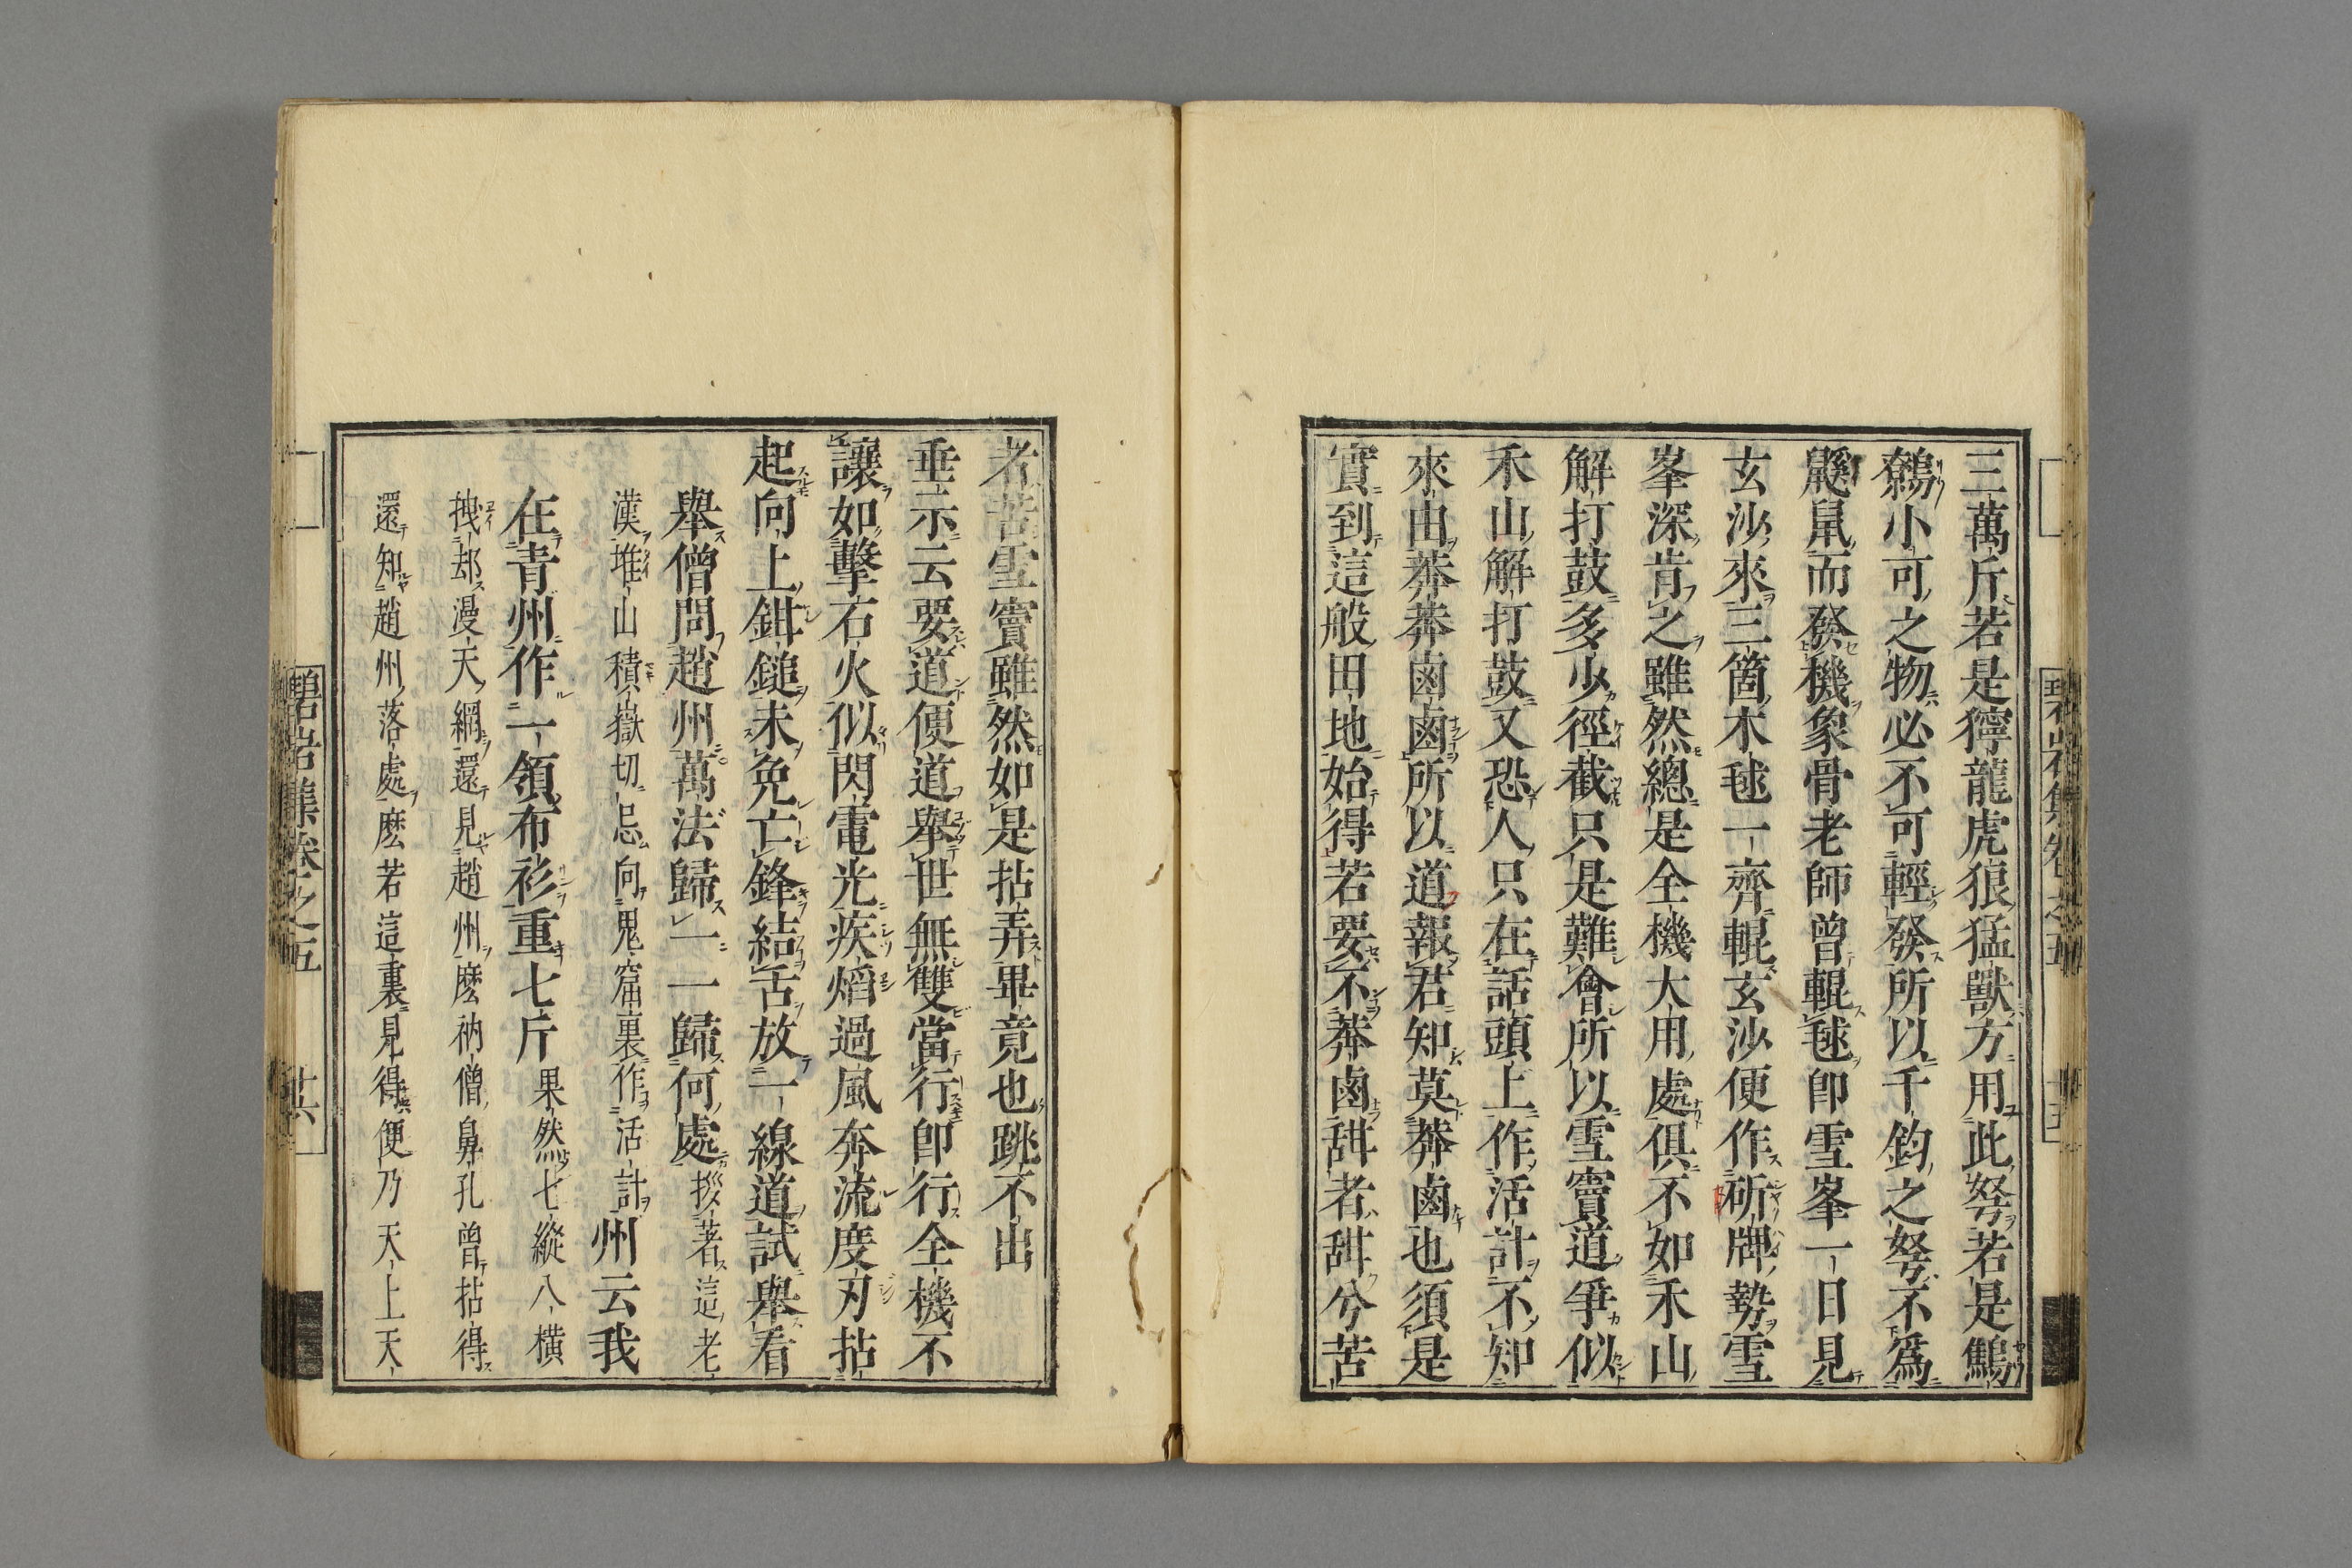 三萬斤若是獰龍虎狼猛獸方用此弩若是鷦
鷯小可之物必不可輕發所以千鈞之弩不爲
鼷鼠而發機象骨老師曾輥毬卽雪峯一日見
玄沙來三箇木毬一齊輥玄沙便作斫牌勢雪
峯深肯之雖然總是全機大用處俱不如禾山
解打鼓多少徑截只是難會所以雪竇道爭似
禾山解打鼓又恐人只在話頭上作活計不知
來由莾莾鹵鹵所以道報君知莫莾鹵也須是
實到這般田地始得若要不莾鹵甜者甜兮苦
者苦雪竇雖然如是拈弄畢竟也跳不出
垂示云要道便道舉世無雙當行卽行全機不
讓如擊石火似閃電光疾熖過風奔流度刃拈
起向上鉗鎚未免亡鋒結舌放一線道試舉看
舉僧問趙州萬法歸一一歸何處拶著這老
漢堆山積嶽切忌向鬼窟裏作活計州云我
在青州作一領布衫重七斤果然七縱八橫
拽却漫天網還見趙州麽衲僧鼻孔曾拈得
還知趙州落處麽若這裏見得便乃天上天
碧岩集卷之五
廿六